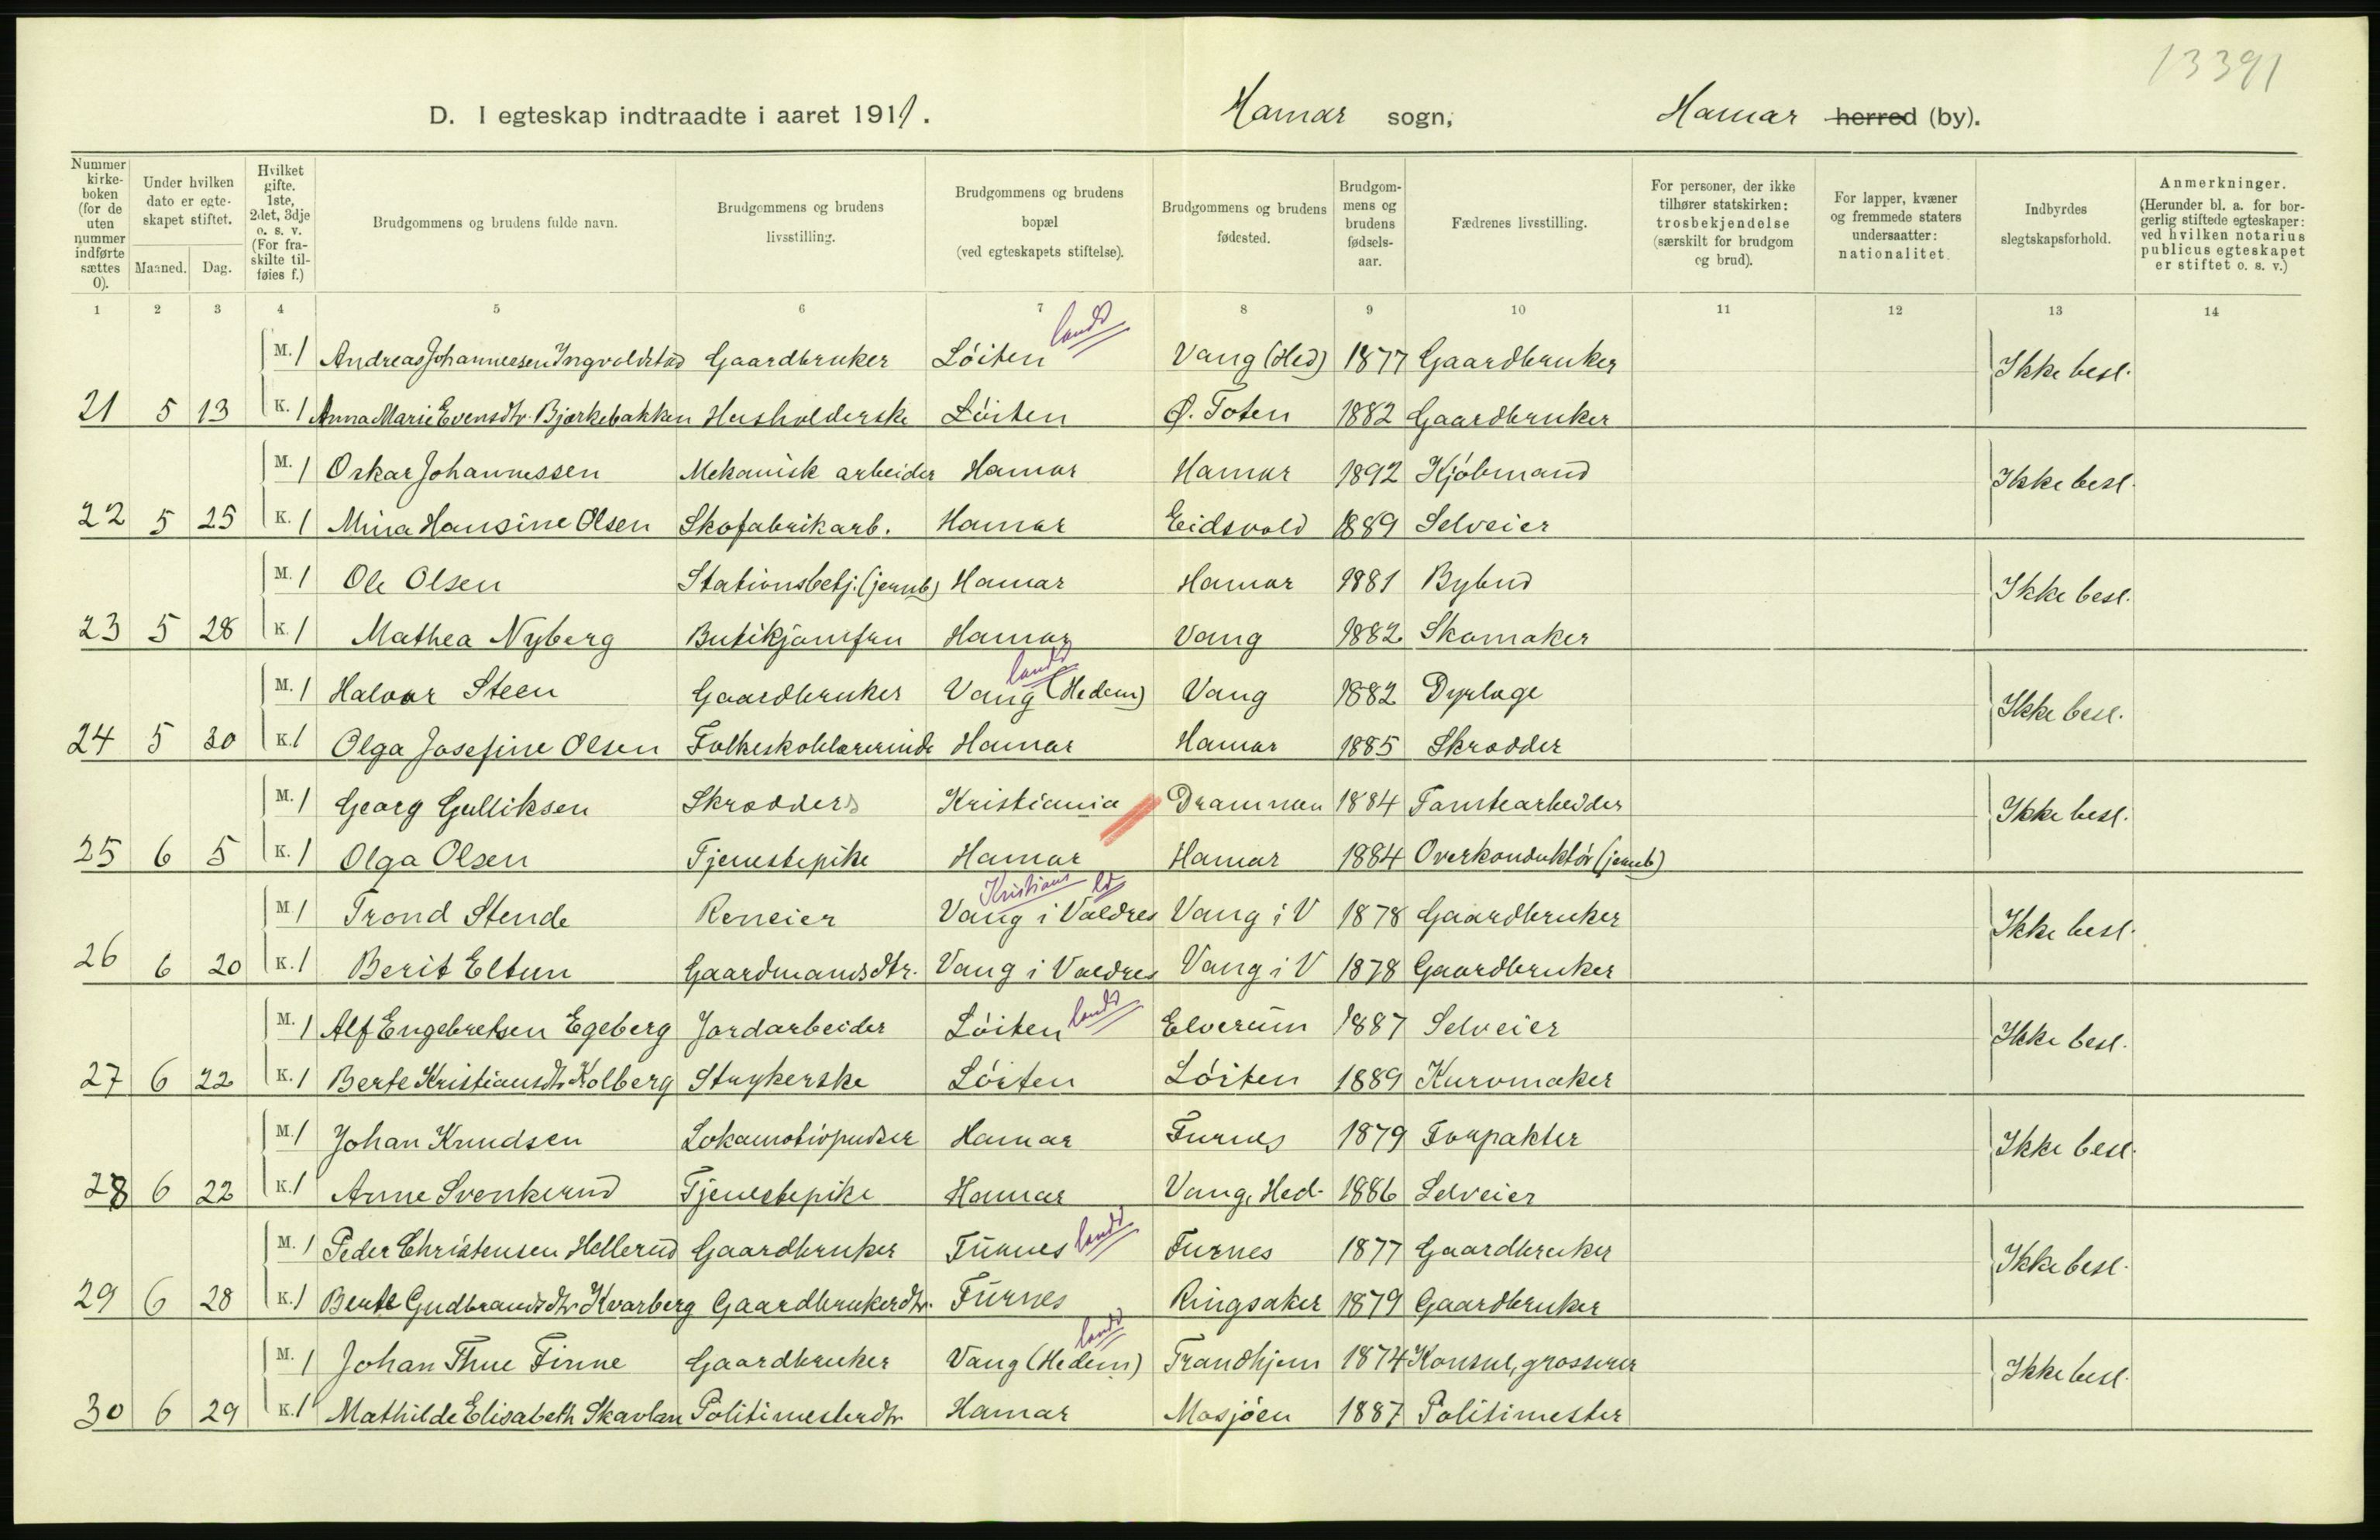 13391
D. I egteskap indtraadte i aaret 1911. Hamar sogn, Hamar herred (by).
Nummer kirke-boken (for de uten nummer indførte sættes 0).
Under hvilken dato er egte-skapet stiftet.
Maaned. Dag.
Hvilket gifte. 1ste, 2det, 3dje o. s. v. (For fra-skilte til-føies f.)
Brudgommens og brudens fulde navn.
Brudgommens og brudens livsstilling.
Brudgommens og brudens bopæl (ved egteskapets stiftelse).
Brudgommens og brudens fødested.
Brudgom-mens og brudens fødsels-aar.
Fædrenes livsstilling.
For personer, der ikke tilhører statskirken: trosbekjendelse (særskilt for brudgom og brud).
For lapper, kvæner og fremmede staters undersaatter: nationalitet.
Indbyrdes slegtskapsforhold.
Anmerkninger. (Herunder bl. a. for bor-gerlig stiftede egteskaper: ved hvilken notarius publicus egteskapet er stiftet o. s. v.)
1 2 3 4 5 6 7 8 9 10 11 12 13 14
M. 1 Andreas Johannessen Ingvoldstad Gaardbruker Løiten landd Vang (Hed) 1877 Gaardbruker Ikke besl.
21 5 13 K. 1 Anna Marie Evensdtr. Bjørkebakken Husholderske Løiten Ø. Toten 1882 Gaardbruker
M. 1 Oskar Johannessen Mekanisk arbeider Hamar Hamar 1892 Kjøbmand Ikke besl.
22 5 25 K. 1 Mina Hansine Olsen Skofabrikarb. Hamar Eidsvold 1889 Selveier
M. 1 Ole Olsen Stationsbetj. (jernb) Hamar Hamar 1881 Bybud Ikke besl.
23 5 28 K. 1 Mathea Nyberg Butikjomfru Hamar Vang 1882 Skomaker
M. 1 Halvor Steen Gaardbruker Vang (Hedem) landd Vang 1882 Dyrlæge Ikke besl.
24 5 30 K. 1 Olga Josefine Olsen Folkeskolelærerinde Hamar Hamar 1885 Skrædder
M. 1 Georg Gulliksen Skrædders Kristiania Drammen 1884 Tomtearbeider Ikke besl.
25 6 5 K. 1 Olga Olsen Tjenestepike Hamar Hamar 1884 Overkonduktør (jernb)
M 1 Trond Stende Reneier Vang i Valdres Kristians ld Vang i V 1878 Gaardbruker Ikke besl.
26 6 20 K. 1 Berit Eltun Gaardmandsdtr. Vang i Valdres Vang i V 1878 Gaardbruker
M. 1 Alf Engebretsen Egeberg Jordarbeider Løiten landd Elverum 1887 Selveier Ikke besl.
27 6 22 K. 1 Berte Kristiansdtr Kolberg Strykerske Løiten Løiten 1889 Kurvmaker
M. 1 Johan Knudsen Lokomotivpudser Hamar Furnes 1879 Forpakter Ikke besl.
28 6 22 K. 1 Anne Svenkerud Tjenestepike Hamar Vang, Hed. 1886 Selveier
M. 1 Peder Christensen Hellerud Gaardbruker Furnes landd Furnes 1877 Gaardbruker Ikke besl.
29 6 28 K. 1 Berte Gudbrandsdtr Kvarberg Gaardbrukerdtr. Furnes Ringsaker 1879 Gaardbruker
M. 1 Johan Thue Finne Gaardbruker Vang (Hedem) landd Trondhjem 1874 Konsul, grosserer Ikke besl.
30 6 29 K. 1 Mathilde Elisabeth Skavlan Politimesterdtr Hamar Mosjøen 1887 Politimester